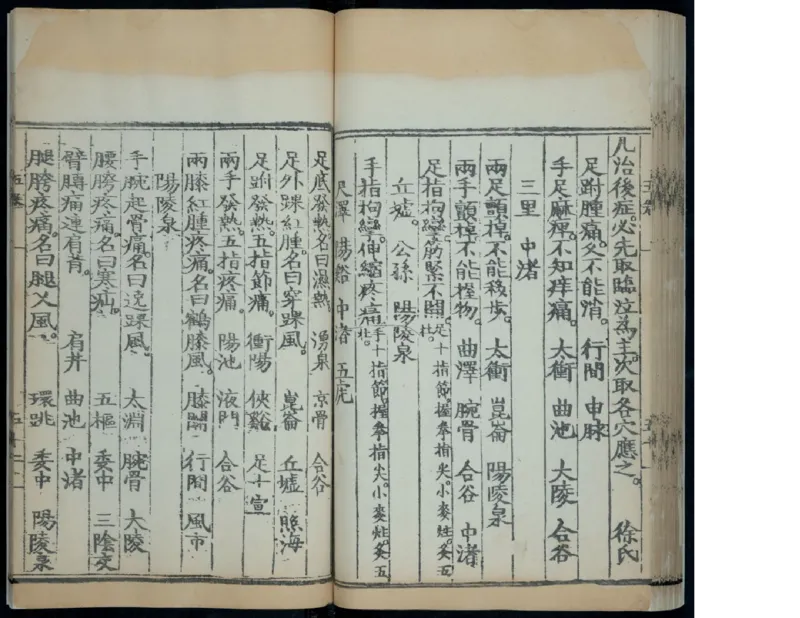 凡治後症。必先取臨泣為主。次取各穴應之。 徐氏
足跗腫痛。久不能消。 行間 申脉
手足麻痺。不知痒痛。 太衝 曲池 大陵 合谷
三里 中渚
兩足顫掉。不能移步。 太衝 崑崙 陽陵泉
兩手顫掉。不能握物。 曲澤 腕骨 合谷 中渚
足指拘攣。筋緊不開。足十指節。握拳指尖。小麥炷。灸五壯。
丘墟。 公孫 陽陵泉
手指拘攣。伸縮疼痛。手十指節。握拳指尖。小麥炷。灸五壯。
尺澤 陽谿 中渚 五虎
足底發熱。名曰濕熱 湧泉 京骨 合谷
足外踝紅腫。名曰穿踝風。 崑崙 丘墟 照海
足跗發熱。五指節痛。 衝陽 俠谿 足十宣
兩手發熱。五指疼痛。 陽池 液門 合谷
兩膝紅腫疼痛。名曰鶴膝風。 膝關 行間 風市
陽陵泉
手腕起骨痛。名曰遶踝風。 太淵 腕骨 大陵
腰胯疼痛。名曰寒疝。 五樞 委中 三陰交
臂膊痛連肩背。 肩井 曲池 中渚
腿胯疼痛。名曰腿叉風。 環跳 委中 陽陵泉